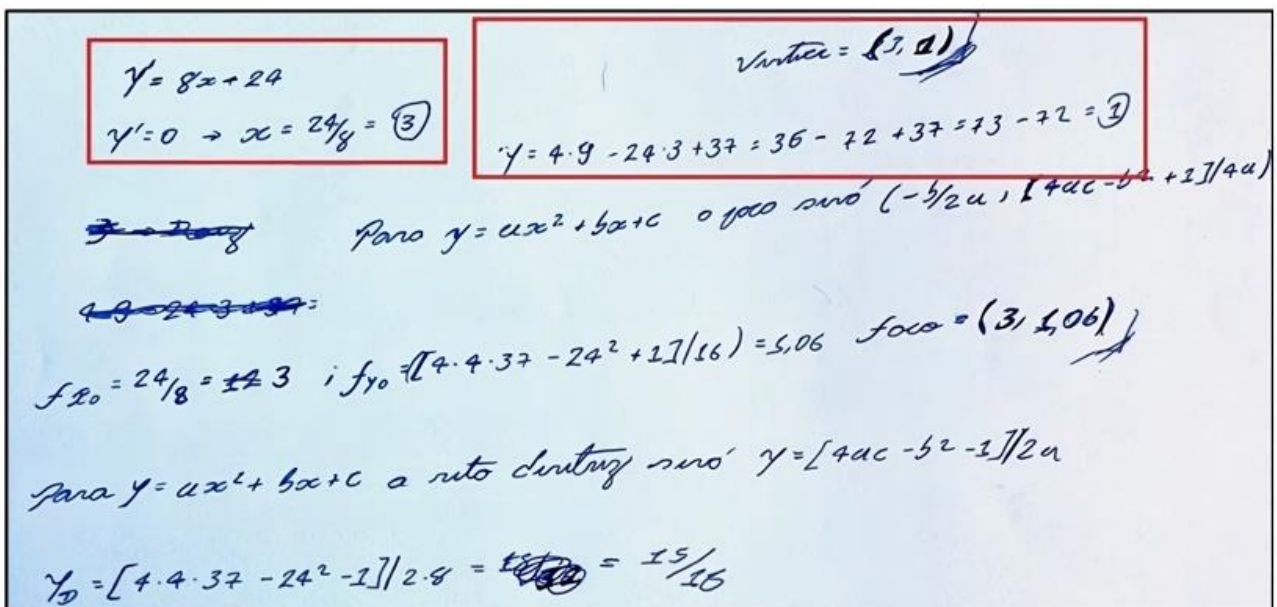 Y' = 8x + 24
Y' = 0 → x = 24/8 = 3
Vértice = (3, 1)
Y = 4·9 - 24·3 + 37 = 36 - 72 + 37 = 73 - 72 = 1
Para y = ax² + bx + c o foco será (-b/2a, [4ac - b² + 1]/4a)
4·9 - 24·3 + 37 =
fx₀ = 24/8 = 12 3 ; fy₀ = ([4·4·37 - 24² + 1]/16) = 1,06 foco = (3, 1,06)
Para y = ax² + bx + c a reta diretriz será y = [4ac - b² - 1]/2a
Y_D = [4·4·37 - 24² - 1]/2·8 = = 15/16